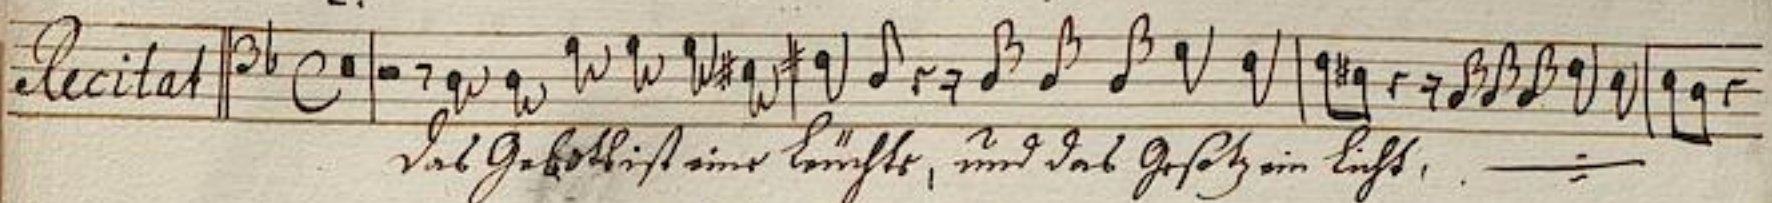 Recitat
Das Geboth ist eine Leüchte, und das Gesetz ein Licht.